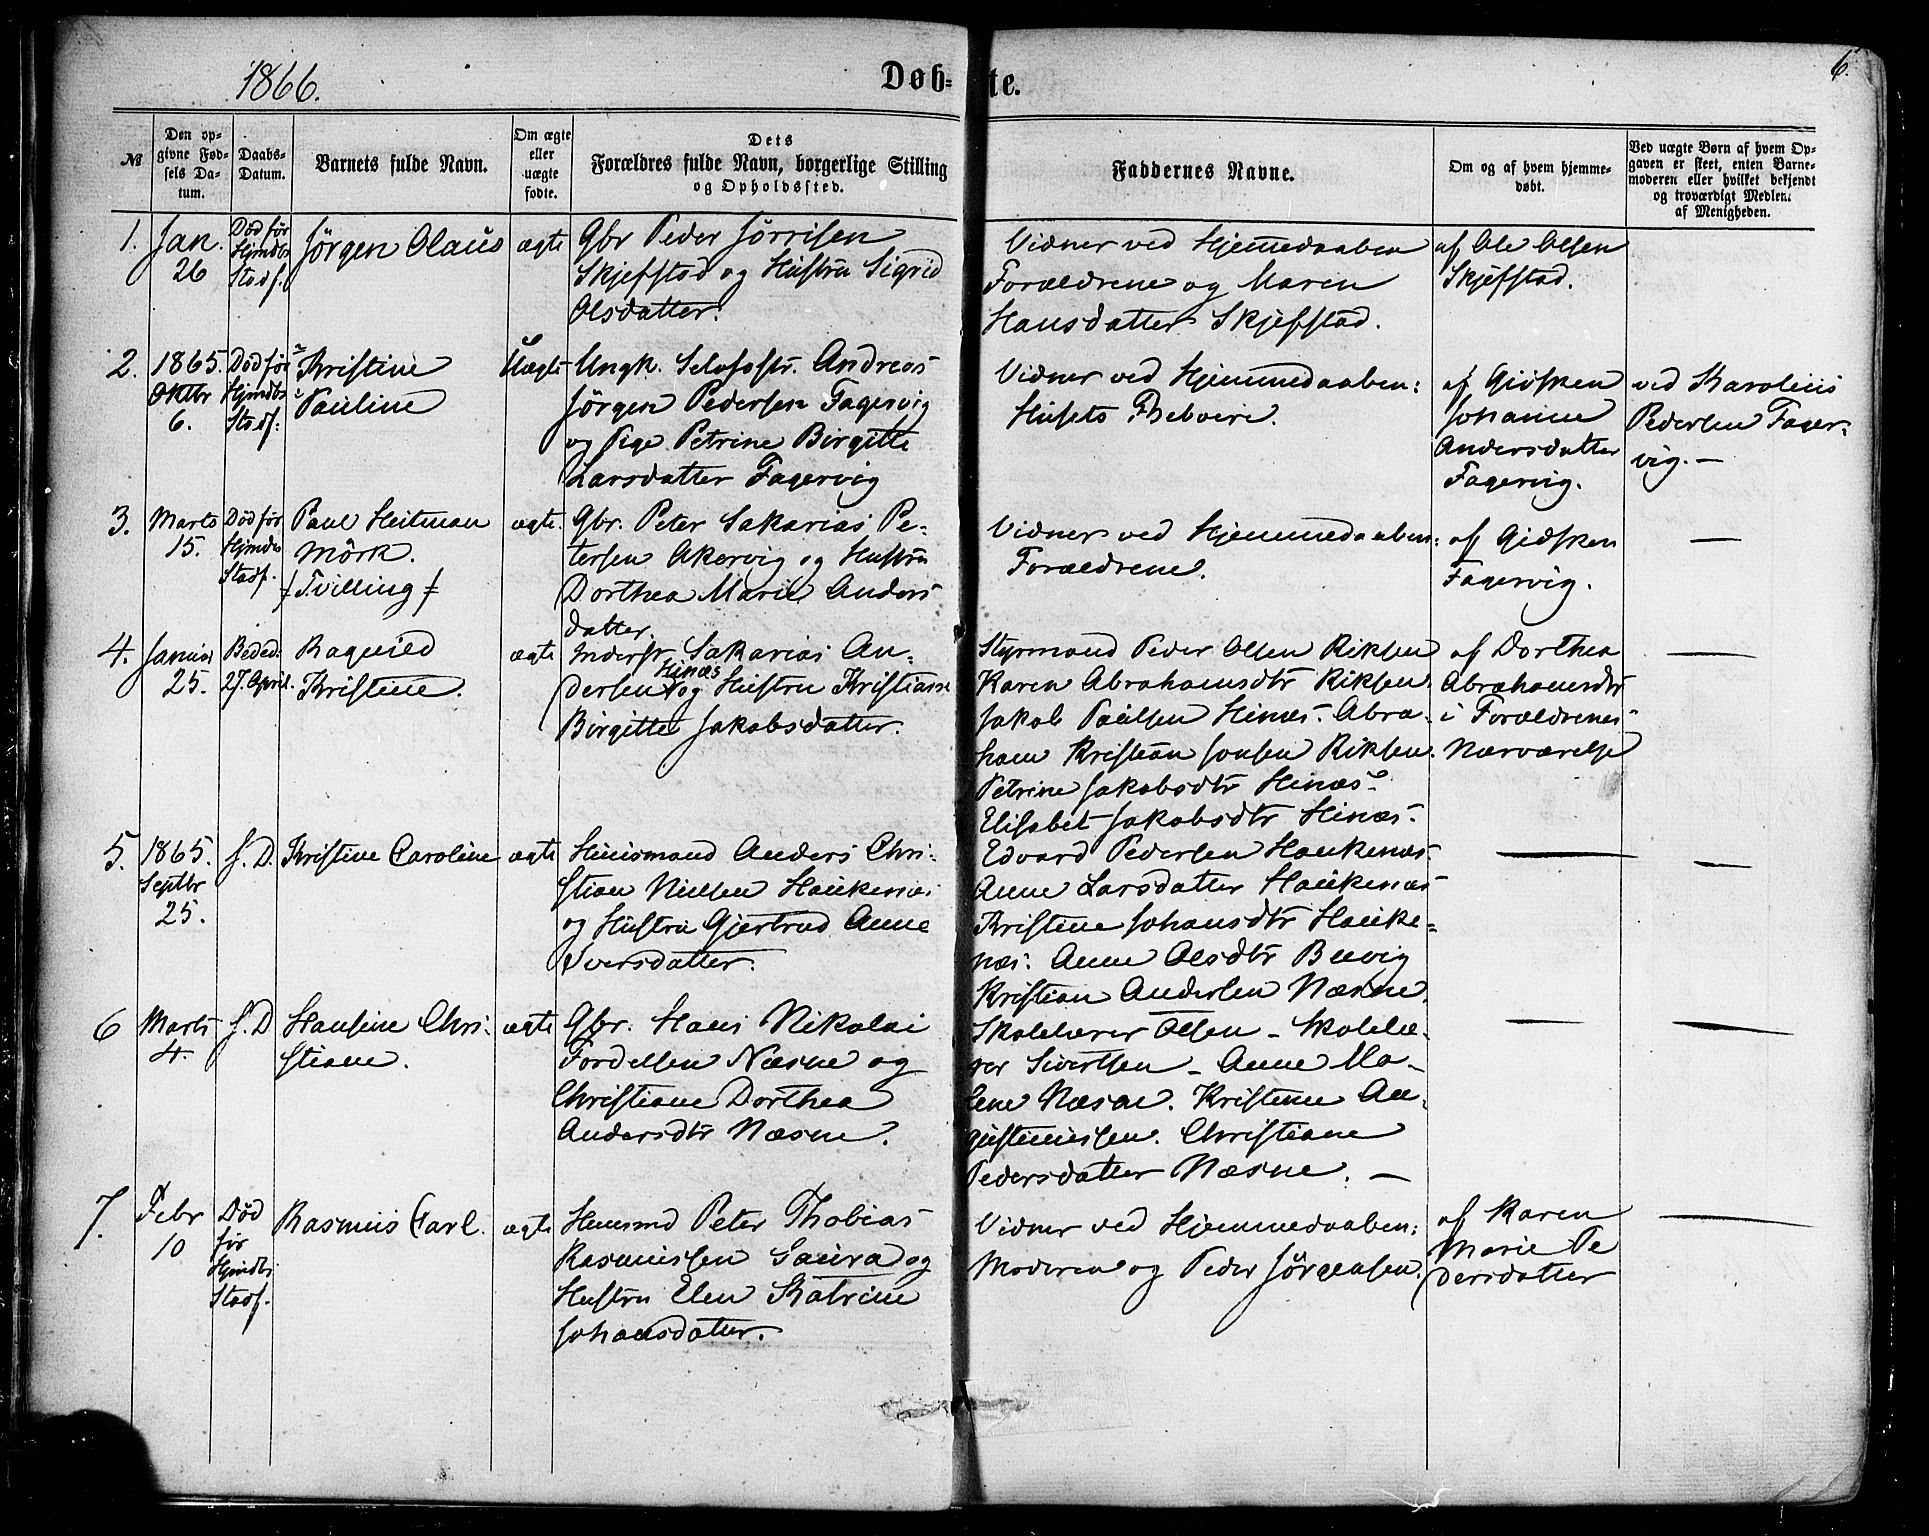 1866.
Døb-
te.
6.
№
Den op-
givne Fød-
sels Da-
tum.
Daabs-
Datum.
Barnets fulde Navn.
Om ægte
eller
uægte
fødte.
Dets
Forældres fulde Navn, borgerlige Stilling
og Opholdssted.
Faddernes Navne.
Om og af hvem hjemme-
døbt.
Ved uægte Børn af hvem Op-
gaven er skeet, enten Barne-
moderen eller hvilket bekjendt
og troværdigt Medlem
af Menigheden.
1.
Jan.
26
Død før
Hjmdbs
Stadf.
Jørgen Olaus
ægte
Gbr Peder Jørrisen
Skjefstad og Hustru Sigrid
Olsdatter.
Vidner ved Hjemmedaaben
Forældrene og Maren
Hansdatter Skjefstad.
af Ole Olsen
Skjefstad.
2.
1865.
Oktbr
6.
Død før
Hjmdbs
Stadf:
Kristine
Pauline
Uægte
Ungk. Selvfostr. Andreas
Jørgen Pedersen Fagervig
og Pige Petrine Birgitte
Larsdatter Fagervig
Vidner ved Hjemmedaaben:
Husets Beboere.
af Gidsken
Johanne
Andersdatter
Fagervig.
ved Karolius
Pedersen Fager-
vig. —
3.
Marts
15.
Død før
Hjmdbs
Stadf.
Paul Heitman
Mörk.
/ Tvilling /
ægte.
Gbr. Peter Sakarias Pe-
tersen Akervig og Hustru
Dorthea Marie Anders
datter.
Vidner ved Hjemmedaaben:
Forældrene.
af Gidsken
Fagervig.
—
4.
Januar
25.
Beded.
27. April.
Ragnild
Kristine.
ægte
Inderst Sakarias An-
dersen Hinæs og Hustru Kristianne
Birgitte Jakobsdatter.
Styrmand Peder Olsen Riksen
Karen Abrahamsdtr Riksen.
Jakob Paulsen Hinæs. Abra-
ham Kristian Jonsen Riksen.
Petrine Jakobsdtr Hinæs.
Elisabet Jakobsdtr Hinæs.
af Dorthea
Abrahamsdtr
i Forældrenes
Nærværelse
—
5.
1865.
Septbr
25.
J. D.
Kristine Caroline
ægte
Huusmand Anders Chri-
stian Nielsen Haukenæs
og Hustru Gjertrud Anne
Iversdatter.
Edvard Pedersen Haukenæs.
Anne Larsdatter Haukenæs
Kristine Johansdtr Hauke-
næs. Anne Olsdtr Buvig
Kristian Andersen Næsne.
—
—
6
Marts
4.
J. D
Hansine Chri-
stiane.
ægte
Gbr. Hans Nikolai
Fordelsen Næsne og
Christiane Dorthea
Andersdtr Næsne.
Skolelærer Olsen – Skolelæ-
rer Sivertsen – Anne Ma-
lene Næsne. Kristine Au-
gustinussen. Christiane
Pedersdatter Næsne. —
—
—
7.
Febr
10
Død
før
Hjmdbs
Stadf.
Rasmus Carl.
ægte
Huusmd Peter Thobias
Rasmussen Saura og
Hustru Elen Katrine
Johansdatter.
Vidner ved Hjemmedaaben:
Moderen og Peder Jørgensen.
af Karen
Marie Pe
dersdatter
—